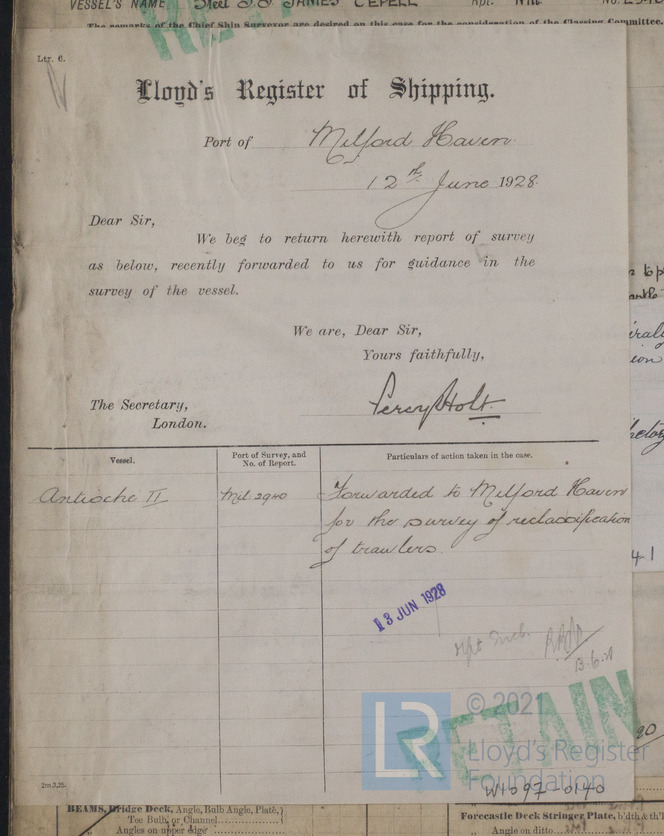 VESSEL'S NAME Steel S.S. JAMES
The remarks of the Chief Ship Surveyor are desired on this case for the consideration of the Classing Committee.
Ltr. 6.
Lloyd's Register of Shipping.
Port of Milford Haven
12th June 1928.
Dear Sir,
We beg to return herewith report of survey
as below, recently forwarded to us for guidance in the
survey of the vessel.
We are, Dear Sir,
Yours faithfully,
Percy Holt.
The Secretary,
London.
Vessel. Port of Survey, and No. of Report. Particulars of action taken in the case.
Antioche II Mil. 2940 Forwarded to Milford Haven
for the survey of reclassification
of trawlers.
13 JUN 1928
13.6.28
RETAIN
LR © 2021
Lloyd's Register
Foundation
W1097-0140
2m,3,25.
BEAMS, Bridge Deck, Angle, Bulb Angle, Plate,
Tee Bulb, or Channel
Angles on upper edge
Forecastle Deck Stringer Plate, b'dth & th'
Angle on ditto